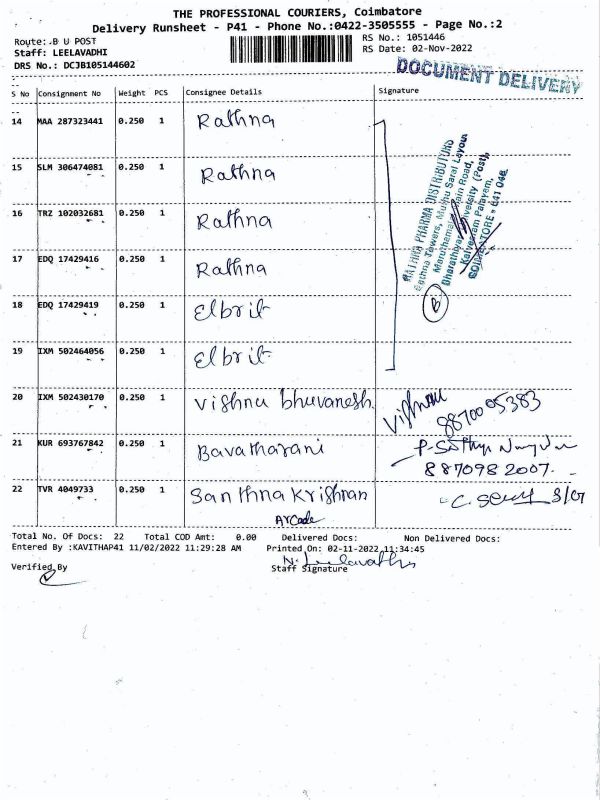 THE PROFESSIONAL COURIERS, Coimbatore
Delivery Runsheet - P41 - Phone No.:0422-3505555 - Page No.:2
Route: B U POST
Staff: LEELAVADHI
DRS No.: DCJB105144602
RS No.: 1051446
RS Date: 02-Nov-2022
DOCUMENT DELIVERY
S No Consignment No Weight PCS Consignee Details Signature
14 MAA 287323441 0.250 1 Rathna
15 SLM 306474081 0.250 1 Rathna
16 TRZ 102032681 0.250 1 Rathna
17 EDQ 17429416 0.250 1 Rathna
18 EDQ 17429419 0.250 1 Elbrit
19 IXM 502464056 0.250 1 Elbrit
RATHNA PHARMA DISTRIBUTORS
Rathna Towers, Muthu Saral Layout
Maruthamalai Main Road,
Bharathiyar University (Post),
Kalveeram Palayam,
COIMBATORE - 641 046
B
20 IXM 502430170 0.250 1 Vishnu bhuvanesh Vishnu
8870005383
21 KUR 693767842 0.250 1 Bavatharani P. Sathya
8870982007.
22 TVR 4049733 0.250 1 Santhna Krishnan C.
ArCade
Total No. Of Docs: 22 Total COD Amt: 0.00 Delivered Docs: Non Delivered Docs:
Entered By :KAVITHAP41 11/02/2022 11:29:28 AM Printed On: 02-11-2022 11:34:45
N. Leelavathi
Verified By Staff Signature